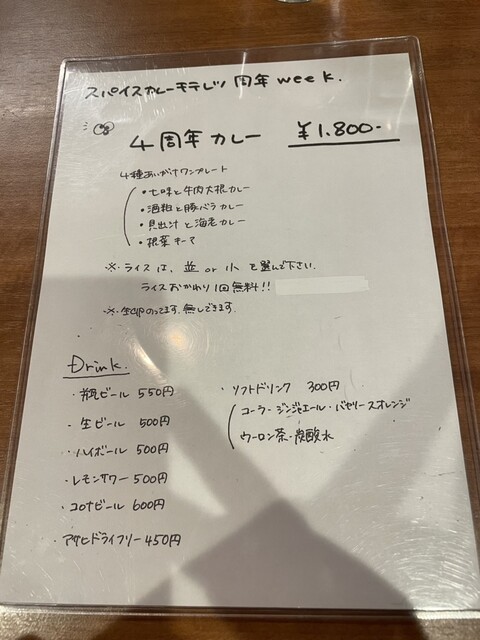 スパイスカレーモテレツ 周年 week.
4周年カレー ¥1.800-
4種あいがけワンプレート
・七味と牛肉大根カレー
・酒粕と豚バラカレー
・貝出汁と海老カレー
・根菜キーマ
※ライスは、並or小を選んで下さい.
ライスおかわり1回無料!!
※生卵のってます。無しできます.
Drink.
・瓶ビール 550円
・生ビール 500円
・ハイボール 500円
・レモンサワー 500円
・コロナビール 600円
・アサヒドライフリー 450円
・ソフトドリンク 300円
コーラ・ジンジャエール・バャリースオレンジ
ウーロン茶・炭酸水